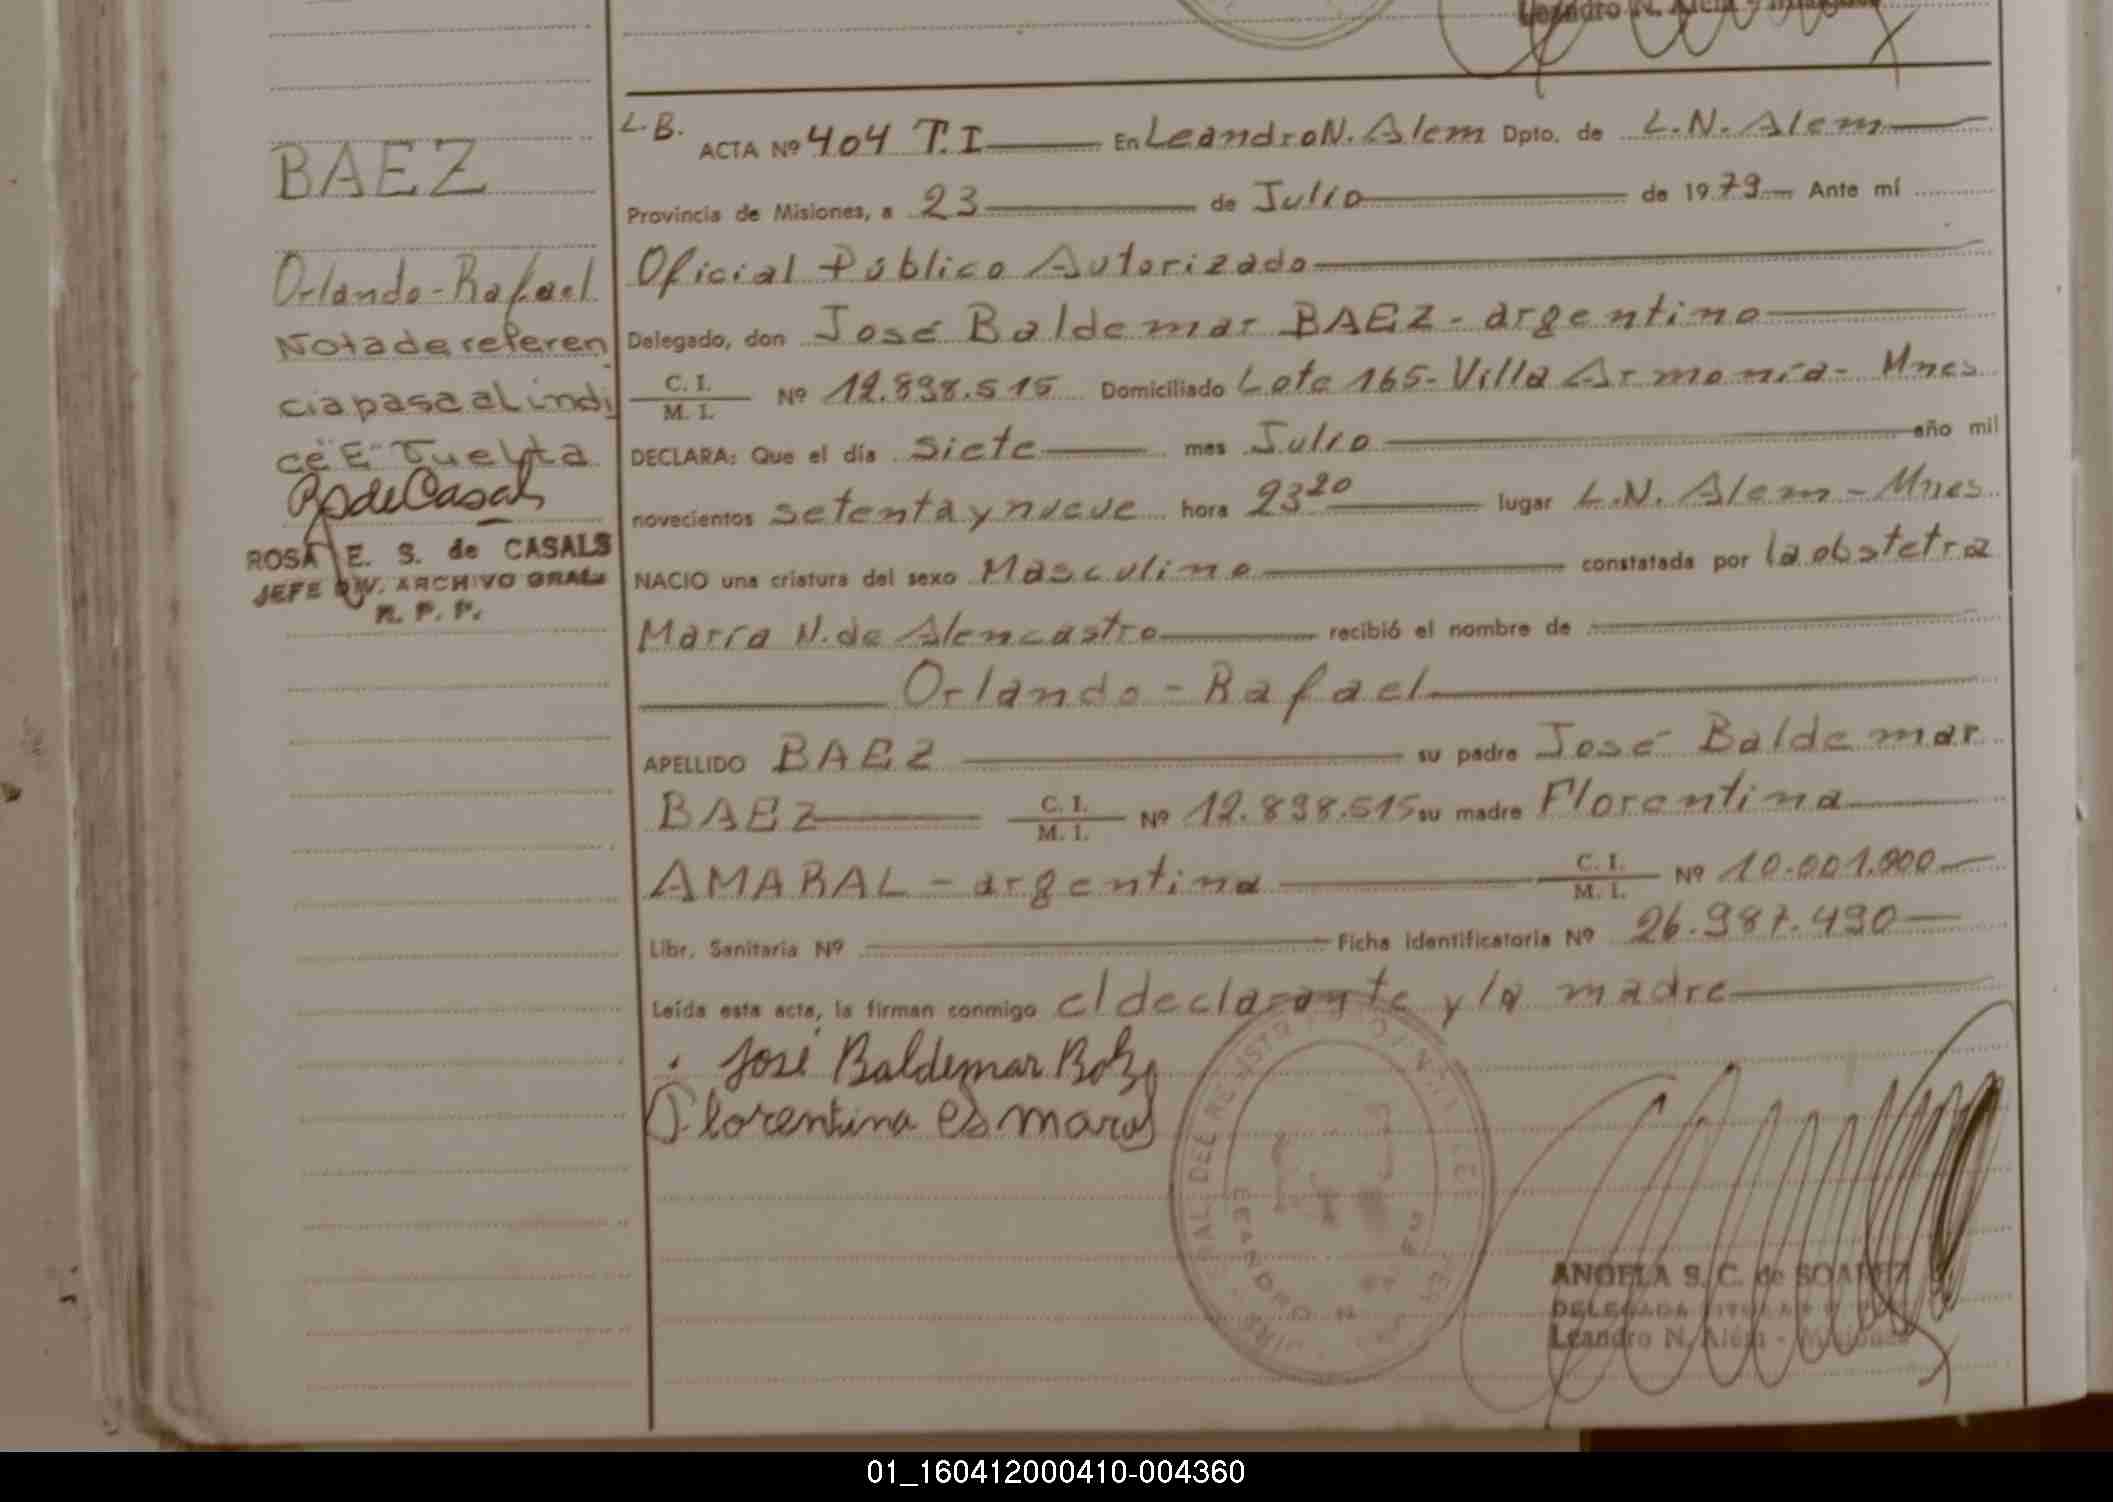 Leandro N. Alem - Misiones
BAEZ
Orlando-Rafael
Nota de referen
cia pasa al indi
ce "E" Vuelta
RSdeCasals
ROSA E. S. de CASALS
JEFE DIV. ARCHIVO GRAL.
R. P. P.
L.B. ACTA Nº 404 T.I En Leandro N. Alem Dpto. de L.N. Alem
Provincia de Misiones, a 23 de Julio de 1979 Ante mí
Oficial Público Autorizado
Delegado, don José Baldemar BAEZ - argentino
C. I. / M. I. Nº 12.838.515 Domiciliado Lote 165 - Villa Armonía - Mnes
DECLARA: Que el día siete mes Julio año mil
novecientos setenta y nueve hora 23 20 lugar L.N. Alem - Mnes
NACIO una criatura del sexo Masculino constatada por la obstetra
María N. de Alencastro recibió el nombre de
Orlando - Rafael
APELLIDO BAEZ su padre José Baldemar
BAEZ C. I. / M. I. Nº 12.838.515 su madre Florentina
AMARAL - argentina C. I. / M. I. Nº 10.001.000
Libr. Sanitaria Nº Ficha Identificatoria Nº 26.987.490
Leída esta acta, la firman conmigo el declarante y la madre
José Baldemar
Florentina
ANGELA S. C. de SOAREZ
DELEGADA TITULAR
Leandro N. Alem - Misiones
01_160412000410-004360